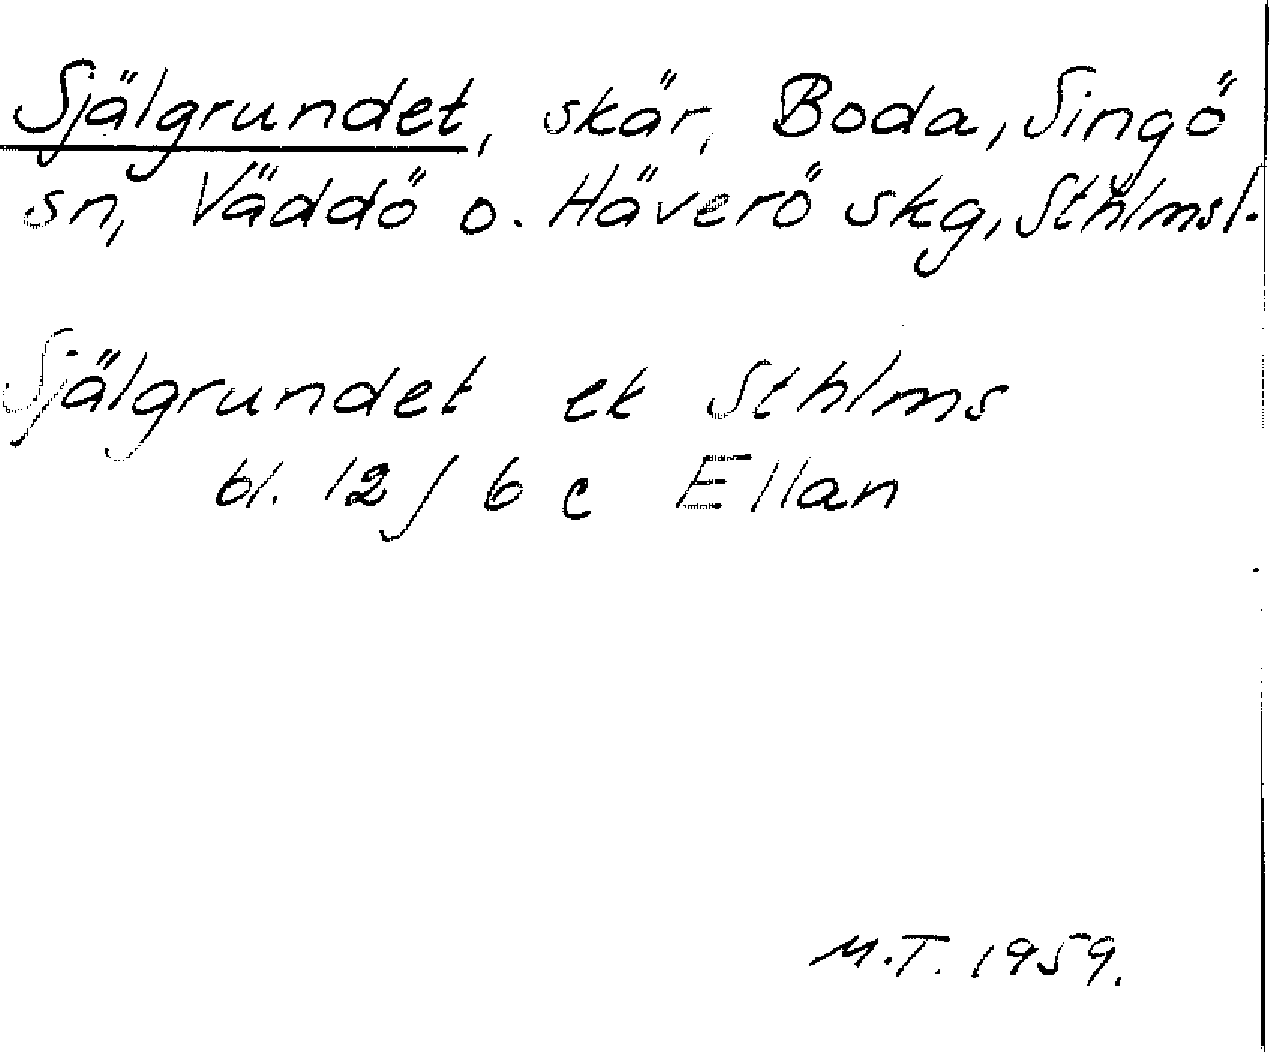 Själgrundet, skär, Boda, Singö
sn, Väddö o. Häverö skg, Sthlmsl.
Själgrundet ek Sthlms
bl. 12 / 6 c Ellan
M.T. 1959.